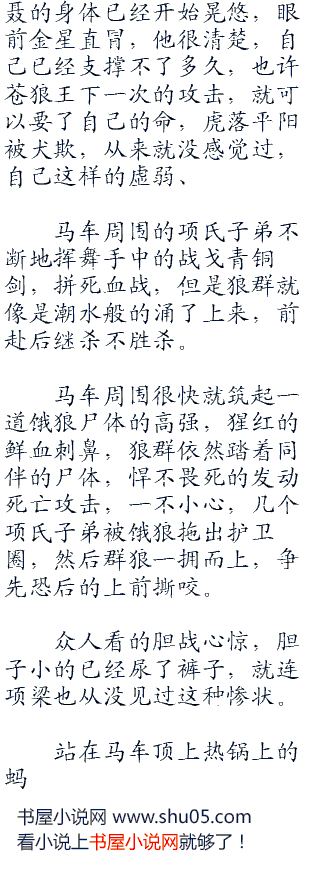 聂的身体已经开始晃悠，眼
前金星直冒，他很清楚，自
己已经支撑不了多久，也许
苍狼王下一次的攻击，就可
以要了自己的命，虎落平阳
被犬欺，从来就没感觉过，
自己这样的虚弱、
马车周围的项氏子弟不
断地挥舞手中的战戈青铜
剑，拼死血战，但是狼群就
像是潮水般的涌了上来，前
赴后继杀不胜杀。
马车周围很快就筑起一
道饿狼尸体的高强，猩红的
鲜血刺鼻，狼群依然踏着同
伴的尸体，悍不畏死的发动
死亡攻击，一不小心，几个
项氏子弟被饿狼拖出护卫
圈，然后群狼一拥而上，争
先恐后的上前撕咬。
众人看的胆战心惊，胆
子小的已经尿了裤子，就连
项梁也从没见过这种惨状。
站在马车顶上热锅上的
蚂
书屋小说网 www.shu05.com
看小说上书屋小说网就够了！